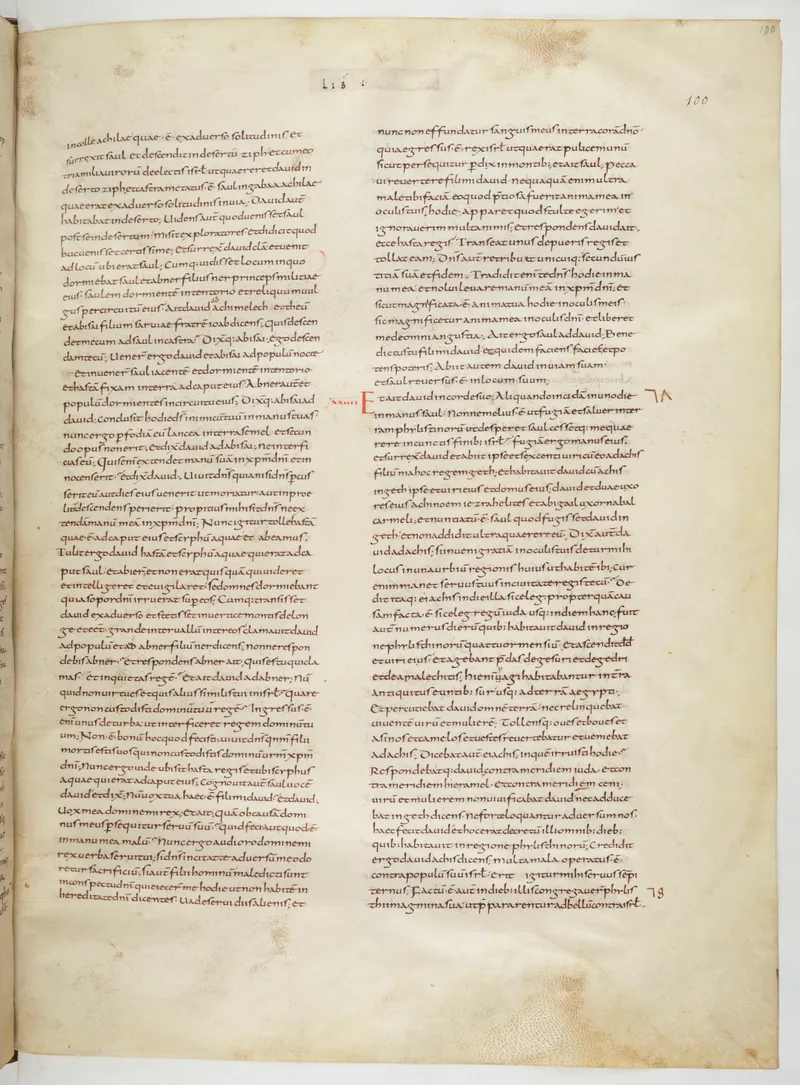 LIB I
100
in colle achilae quae · ē · ex aduerso solitudinis, et
surrexit saul et descendit in desertū ziph et cum eo
tria milia uirorū de electis isrƚ ut quaereret dauid in
deserto ziph et castrametatus · ē · saul in gabaa achilae
quae erat ex aduerso solitudinis in uia; Dauid autē
habitabat in deserto; Uidens autē quod uenisset saul
post se in desertum misit exploratores et didicit quod
huc uenisset certissime; Et surrex dauid clā et uenit
ad locū ubi erat saul; Cumq: uidisset locum in quo
dormiebat saul et abner filius ner princeps militiae
eius. saulem dormientē in tentorio et reliquū uul
gus per circuitū eius. Ait dauid achimelech etheū
et abisai filium saruiae fratrē ioab dicens; Quis descen
det mecum ad saul in castra; Dixq: abisai; Ego descen
dam tecū; Uener ergo dauid et abisai ad populū nocte
et inuener saul iacentē et dormientē in tentorio
et hastā fixam in terra ad caput eius. Abner autē et
populū dormientes in circuitu eius; Dixq: abisai ad
dauid; conclusit hodie ds inimicū tuū in manus tuas.
nunc ergo pfodiā eū lancea in terra semel. et secun
do opus non erit; Et dix dauid ad abisai; ne interfi
cias eū; Quis enī extendet manū suā in xpm dnī et in
nocens erit; Et dix dauid; Uiuit dns quia nisi dns pcus
serit eū aut dies eius uenerit ut moriatur. aut in proe
liū descendens perierit. propitius mihi sit dns ne ex
tendā manū meā in xpm dnī; Nunc igitur tolle hastā
quae · ē · ad caput eius et scyphū aquae et abeamus.
Tulit ergo dauid hastā et scyphū aquae qui erat ad ca
put saul. et abier; et non erat quisquā qui uideret
et intellegeret et euigilaret sed omnes dormiebant
quia sopor dnī irruerat sup eos; Cumq: transisset
dauid ex aduerso et stetisset in uertice montis de lon
ge et eēt grande interuallū inter eos clamauit dauid
ad populū et ad abner filiū ner dicens; nonne respon
debis abner; Et respondens abner ait; quis es tu qui cla
mas et inquietas regē; Et ait dauid ad abner; Nū
quid non uir tu es et quis alius similis tui in isrƚ; quare
ergo non custodisti dominū tuū regē; Ingressus · ē ·
enī unus de turba ut interficeret regem dominū tu
um; Non · ē · bonū hoc quod fecisti. uiuit dns qnm filii
mortis estis uos qui non custodistis dominū urm xpm
dnī; Nunc ergo uide ubi sit hasta regis et ubi scyphus
aquae qui erat ad caput eius; Cognouit autē saul uocē
dauid et dix; Nū uox tua haec · ē · fili mi dauid; et dauid;
Uox mea domine mi rex; Et ait; quā ob causā domi
nus meus psequitur seruū suū; Quid feci aut quod · ē ·
in manu mea malū; Nunc ergo audi oro domine m
rex uerba serui tui; si dns incitat te aduersū me odo
retur sacrificiū; si autē filii hominū maledicti sunt
in conspectu dnī qui eiecer me hodie ut non habitē in
hereditate dnī dicentes. Uade serui diis alienis; et
nunc non effundatur sanguis meus in terra corā dno
quia egressus · ē · rex isrƚ ut quaerat pulicem unū
sicut persequitur pdix in montib:; et ait saul; pecca
ui reuertere fili mi dauid. nequaquā enim ultra
male tibi faciā eo quod ptiosa fuerit anima mea in
oculis tuis hodie. apparet quod stulte egerim et
ignorauerim multa nimis; Et respondens dauid ait;
ecce hasta regis; Transeat unus de pueris regis et
tollat eam; Dns autē retribuet unicuiq: secundū ius
titiā suā et fidem; Tradidit enī te dns hodie in ma
nu mea et nolui leuare manū meā in xpm dnī; Et
sicut magnificata · ē · anima tua hodie in oculis meis
sic magnificetur anima mea in oculis dnī et liberet
me de omni angustia; Ait ergo saul ad dauid; Bene
dictus tu fili mi dauid et quidem faciens facies et po
tens poteris; Abiit autem dauid in uiam suam
et saul reuersus · ē · in locum suum;
xxuii Et ait dauid in corde suo; Aliquando incidā in uno die
in manus saul; Nonne melius · ē · ut fugiā et saluer in ter
ra philistinorū ut desperet saul cessetq: me quae
rere in cunctis finib: isrƚ; fugiā ergo manus eius;
et surrex dauid et abiit ipse et sexcenti uiri cū eo ad achis
filiū maoch regem geth; et habitauit dauid cū achis
in geth ipse et uiri eius et domus eius; dauid et duae uxo
res eius achinoem iezrahelites et abigail uxor nabal
carmeli; et nuntiatū · ē · saul quod fugisset dauid in
geth et non addidit ultra quaerere eū; Dix autē da
uid ad achis; si inueni gratiā in oculis tuis detur mihi
locus in una urbiū regionis huius ut habitē ibi; cur
enim manet seruus tuus in ciuitate regis tecū; De
dit itaq: ei achis in die illa siceleg. propter quā cau
sam facta · ē · siceleg regū iuda usq: in diem hanc; fuit
autē numerus dierū quib: habitauit dauid in regio
ne philisthinorū quattuor mensiū; Et ascendit dd
et uiri eius et agebant pdas de gesuri et de gedri
et de amalechitis; Hi enī pagi habitabantur in trā
antiquitus euntib: sur usq: ad terrā aegypti.
Et percutiebat dauid omnē terrā nec relinquebat
uiuentē uirū et mulierē; Tollensq: oues et boues et
asinos et camelos et uestes reuertebatur et ueniebat
ad achis; Dicebat autē ei achis; in quē irruisti hodie;
Respondebatq: dauid; contra meridiem iuda. et con
tra meridiem hiramel. et contra meridiem ceni.
uirū et mulierem non uiuificabat dauid nec adduce
bat in geth dicens; Ne forte loquantur aduersum nos.
haec fecit dauid et hoc erat decretū illi omnib: dieb:
quib: habitauit in regione philisthinorū; Credidit
ergo dauid achis dicens; multa mala operatus · ē ·
contra populū suū isrƚ; erit igitur mihi seruus sempi
ternus; Factū · ē · autē in dieb: illis congregauer philis
thim agmina sua ut pararentur ad bellū contra isrƚ.